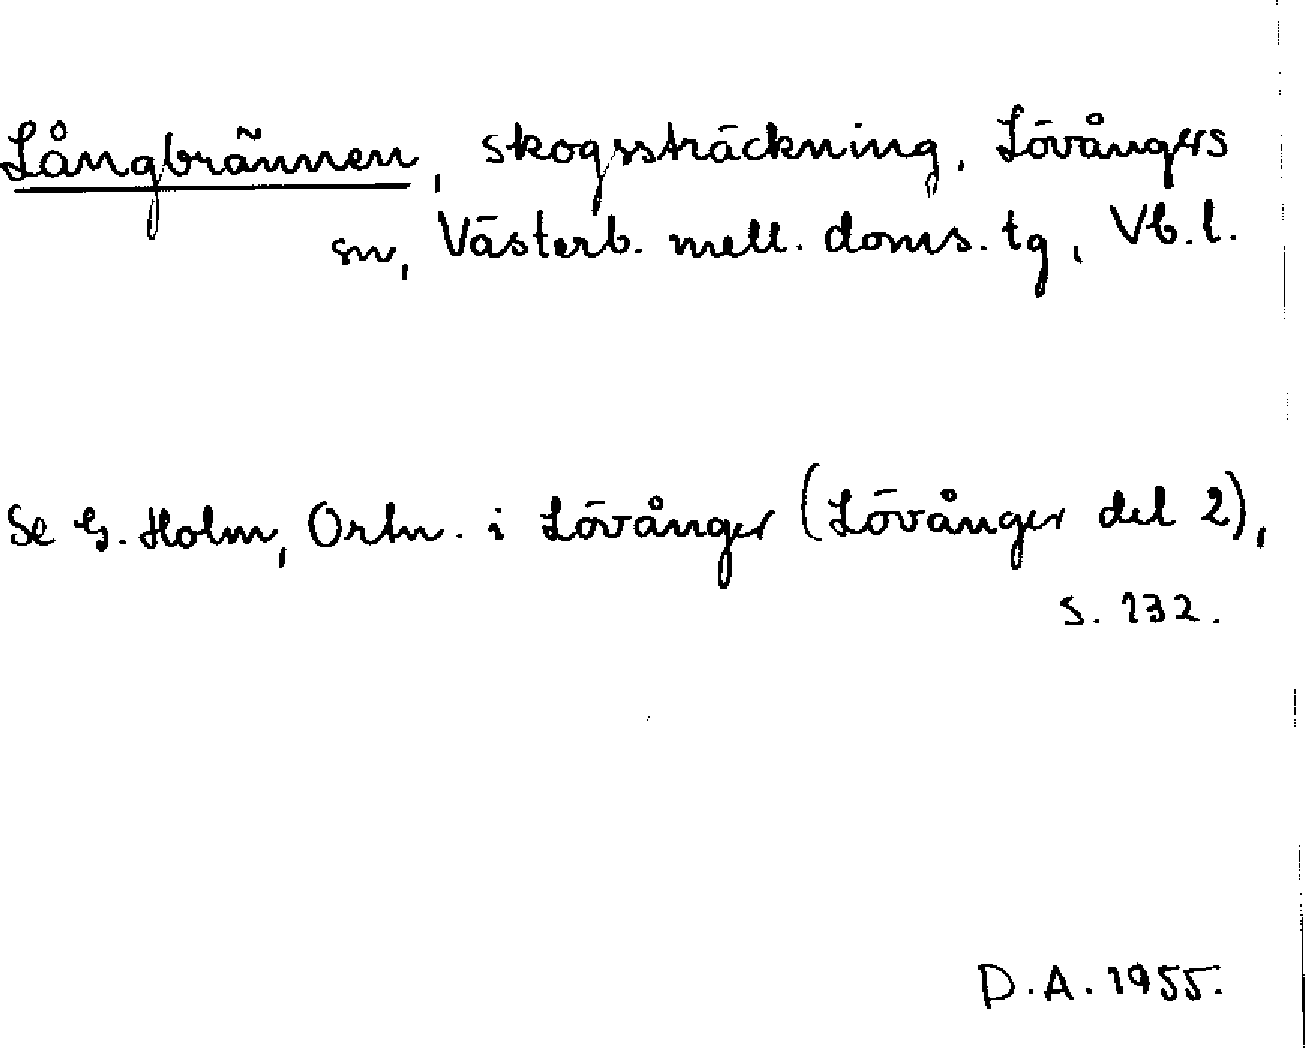 Långbrännen, skogssträckning, Lövångers
sn, Västerb. mell. doms. tg, Vb. l.
Se G. Holm, Ortn. i Lövånger (Lövånger del 2),
s. 132.
D.A. 1955.